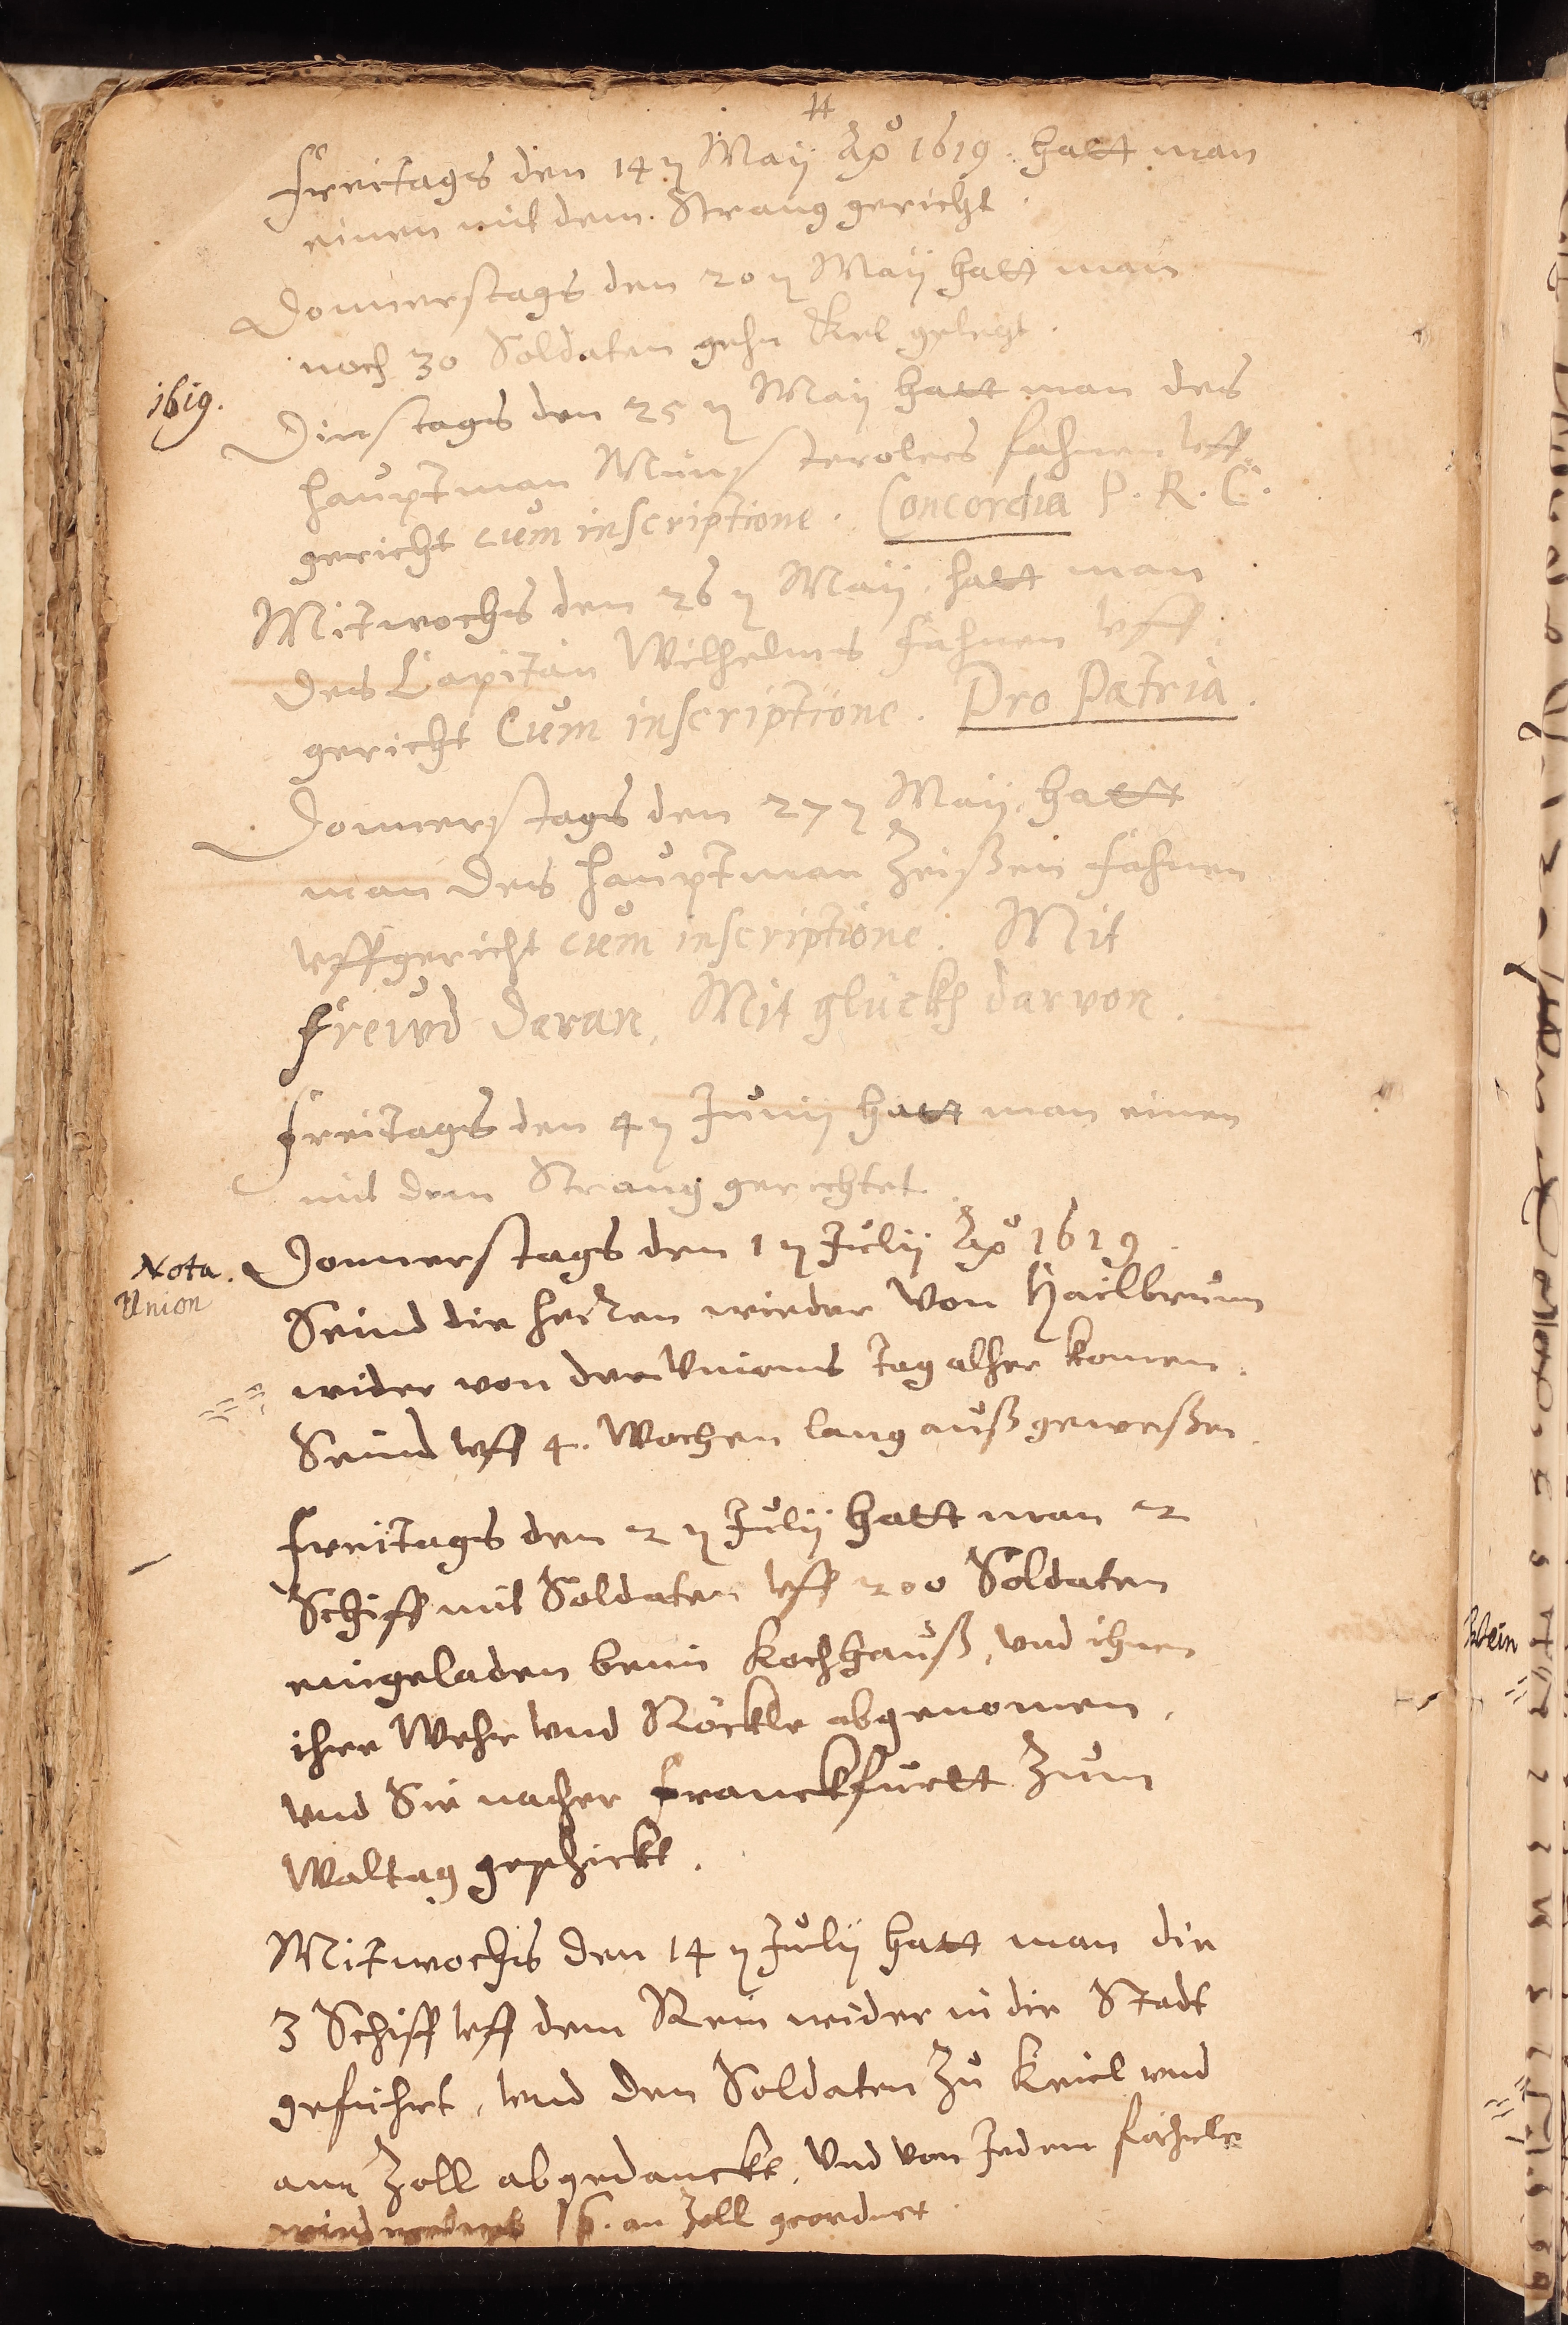 Freitags den 14 n Maÿ Aõ 1619. hatt man
einen mit dem Strang gericht.
Donnerstags den 20 n Maÿ hatt man
noch 30 Soldaten gehn Kel gelegt.
1619.
Dinstags den 25 n Maÿ hatt man des
Hauptman Münsterolers fahnen vff
gericht cum inscriptione. Concordia P. R. C.
Mitwochs den 26 n Maÿ. hatt man
des Capitän Wilhelms fahnen vff
gericht Cum inscriptione. Pro Patria.
Donnerstags den 27 n Maÿ. hatt
man des Hauptman Zeißen fahnen
vffgericht cum inscriptione. Mit
Freuvd daran, Mit glückh darvon.
Freitags den 4 n Junÿ hatt man einen
mit dem Strang gerichtet.
Nota.
Union
Donnerstags den 1 n Julÿ Aõ 1619.
Seind die herren wieder Von Hailbrunn
wider von der Vnions tag alher komen.
Seind vff 4. Wochen lang außgeweßen.
Freitags den 2 n Julÿ hatt man 2
Schiff mit Soldaten vff 200 Soldaten
eingeladen beim Kochhauß, vnd ihnen
ihre Wehr vnd Röckle abgenomen,
vnd Sie nacher Franckfurtt zum
Waltag geschickt.
Mitwochs den 14 n Julÿ hatt man die
3 Schiff vff dem Rein wider in die Stadt
geführt, vnd den Soldaten zu Keiel vnd
am Zoll abgedanckt. Vnd von Jedem fächele
16. an Zoll geordnet.